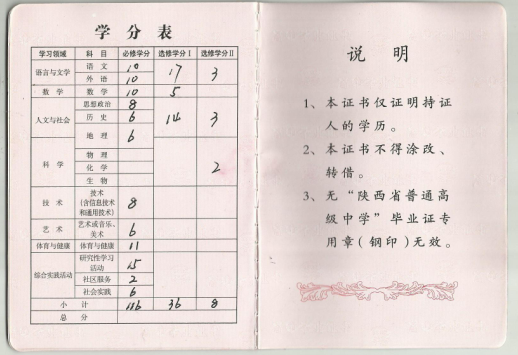 学分表
学习领域 科目 必修学分 选修学分Ⅰ 选修学分Ⅱ
语言与文学 语文 10 17 3
外语 10
数学 数学 10 5
人文与社会 思想政治 8 14 3
历史 6
地理 6
科学 物理 2
化学
生物
技术 技术(含信息技术和通用技术) 8
艺术 艺术或音乐、美术 6
体育与健康 体育与健康 11
综合实践活动 研究性学习活动 15
社区服务 2
社会实践 6
小计 116 36 8
总分
说明
1、本证书仅证明持证
人的学历。
2、本证书不得涂改、
转借。
3、无“陕西省普通高
级中学”毕业证专
用章(钢印)无效。